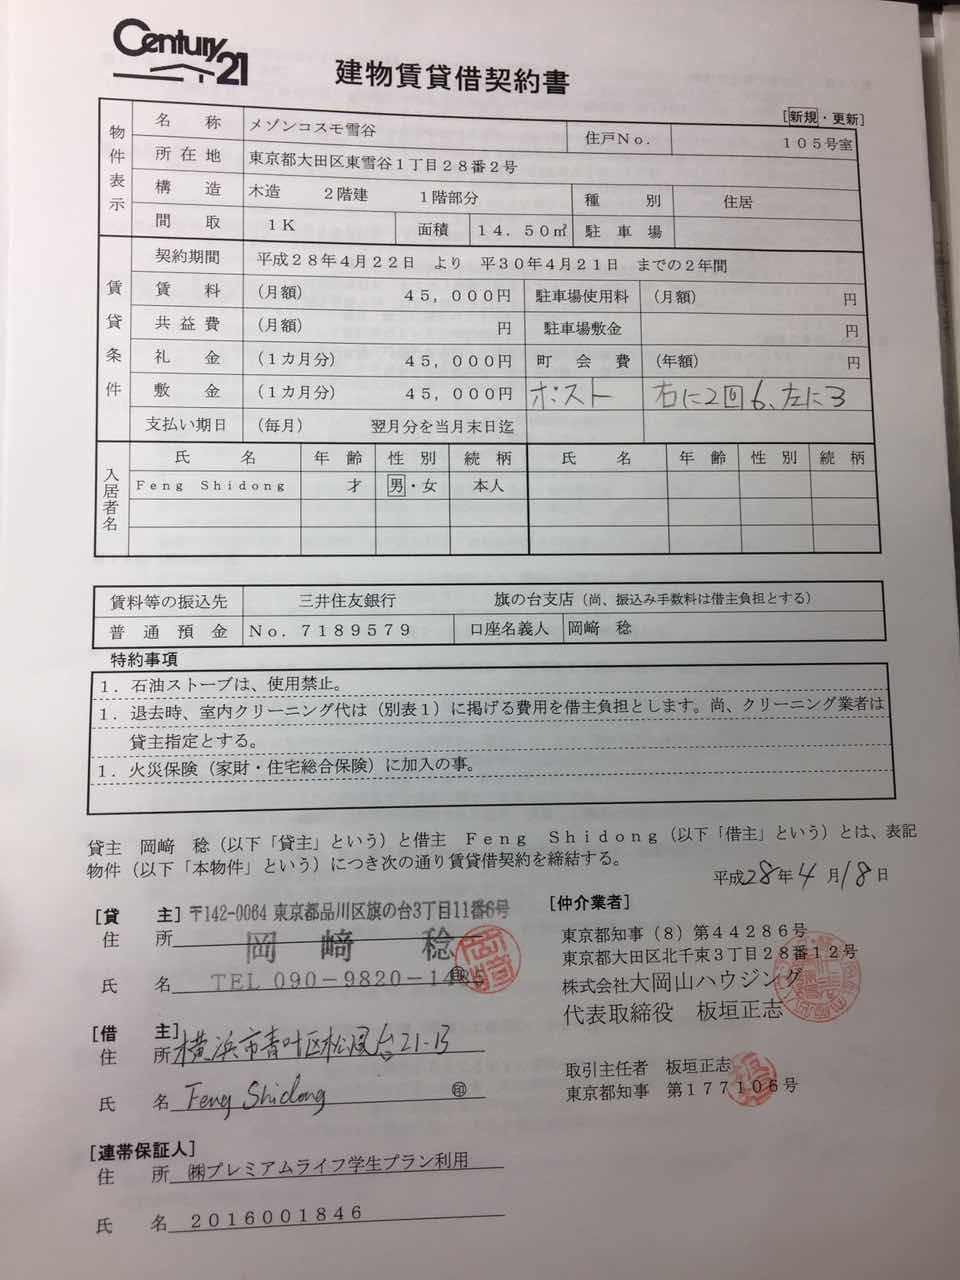 Century 21
建物賃貸借契約書
[新規・更新]
物件表示
名　称　メゾンコスモ雪谷　住戸No.　105号室
所在地　東京都大田区東雪谷1丁目28番2号
構　造　木造　2階建　1階部分　種　別　住居
間　取　1K　面積　14.50㎡　駐車場
賃貸条件
契約期間　平成28年4月22日　より　平30年4月21日　までの2年間
賃　料　(月額)　45,000円　駐車場使用料　(月額)　円
共益費　(月額)　円　駐車場敷金　円
礼　金　(1カ月分)　45,000円　町会費　(年額)　円
敷　金　(1カ月分)　45,000円　ポスト　右に2回6、左に3
支払い期日　(毎月)　翌月分を当月末日迄
入居者名
氏　名　年齢　性別　続柄　氏　名　年齢　性別　続柄
Feng Shidong　才　男・女　本人
賃料等の振込先　三井住友銀行　旗の台支店(尚、振込み手数料は借主負担とする)
普通預金　No.7189579　口座名義人　岡﨑　稔
特約事項
1．石油ストーブは、使用禁止。
1．退去時、室内クリーニング代は(別表1)に掲げる費用を借主負担とします。尚、クリーニング業者は
貸主指定とする。
1．火災保険(家財・住宅総合保険)に加入の事。
貸主　岡﨑　稔(以下「貸主」という)と借主　Feng Shidong(以下「借主」という)とは、表記
物件(以下「本物件」という)につき次の通り賃貸借契約を締結する。
平成28年4月18日
[貸　主]　〒142-0064 東京都品川区旗の台3丁目11番6号
住　所
岡　﨑　稔
氏　名　TEL 090-9820-1485　㊞
[借　主]
住　所　横浜市青叶区松風台21-13
氏　名　Feng Shidong　㊞
[連帯保証人]
住　所　㈱プレミアムライフ学生プラン利用
氏　名　2016001846
[仲介業者]
東京都知事(8)第44286号
東京都大田区北千束3丁目28番12号
株式会社大岡山ハウジング
代表取締役　板垣正志
取引主任者　板垣正志
東京都知事　第177106号